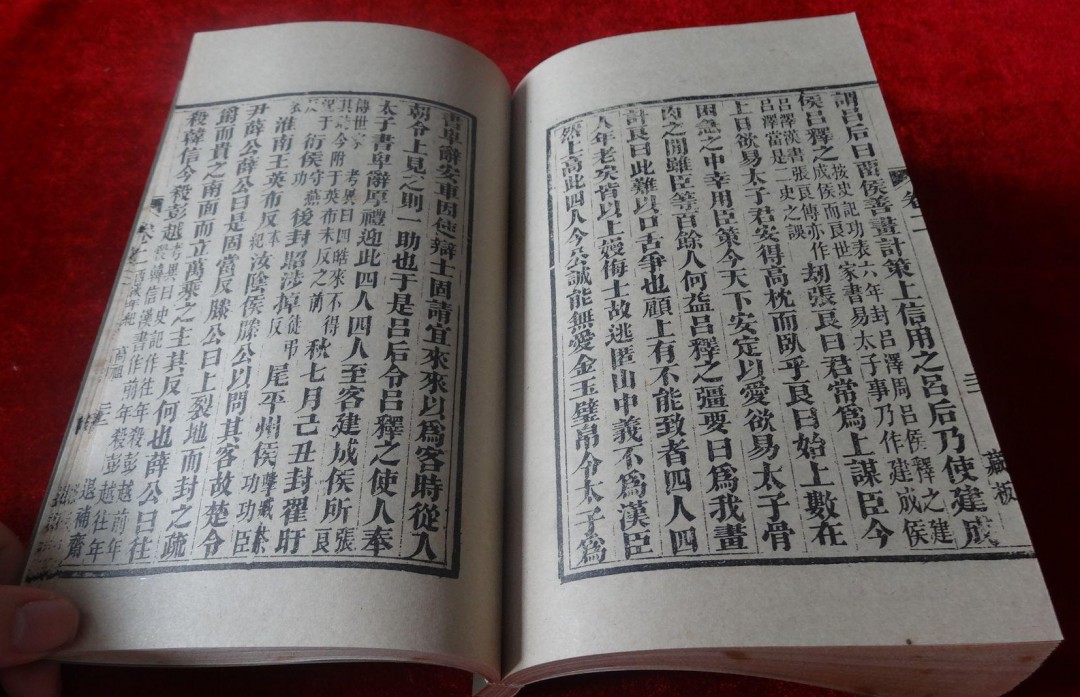 卷二 三 藏板
謂呂后曰留侯善畫計策上信用之呂后乃使建成
侯呂釋之按史記功表六年封呂澤周呂侯釋之建成侯而良世家書易太子事乃作建成侯
呂澤漢書張良傳亦作呂澤當是二史之誤劫張良曰君常為上謀臣今
上日欲易太子君安得高枕而臥乎良曰始上數在
困急之中幸用臣策今天下安定以愛欲易太子骨
肉之間雖臣等百餘人何益呂釋之彊要曰為我畫
計良曰此難以口舌爭也顧上有不能致者四人四
人年老矣皆以上嫚侮士故逃匿山中義不為漢臣
然上高此四人今公誠能無愛金玉璧帛令太子為
書卑辭安車固使辯士固請宜來來以為客時從入
朝令上見之則一助也于是呂后令呂釋之使人奉
太子書卑辭厚禮迎此四人四人至客建成侯所張良
傳世家考異曰四皓來不得其今附于英布未反之前秋七月己丑封翟盱
衍侯守燕功後封昭涉掉徒弔反尾平州侯功臣
淮南王英布反本紀汝陰侯滕公以問其客故楚令
尹薛公薛公曰是固當反滕公曰上裂地而封之疏
爵而貴之南面而立萬乘之主其反何也薛公曰往
殺韓信今殺彭越考異曰史記作往年殺彭越前年殺韓信漢書作前年殺彭越往年
西漢年紀 高祖 退補齋